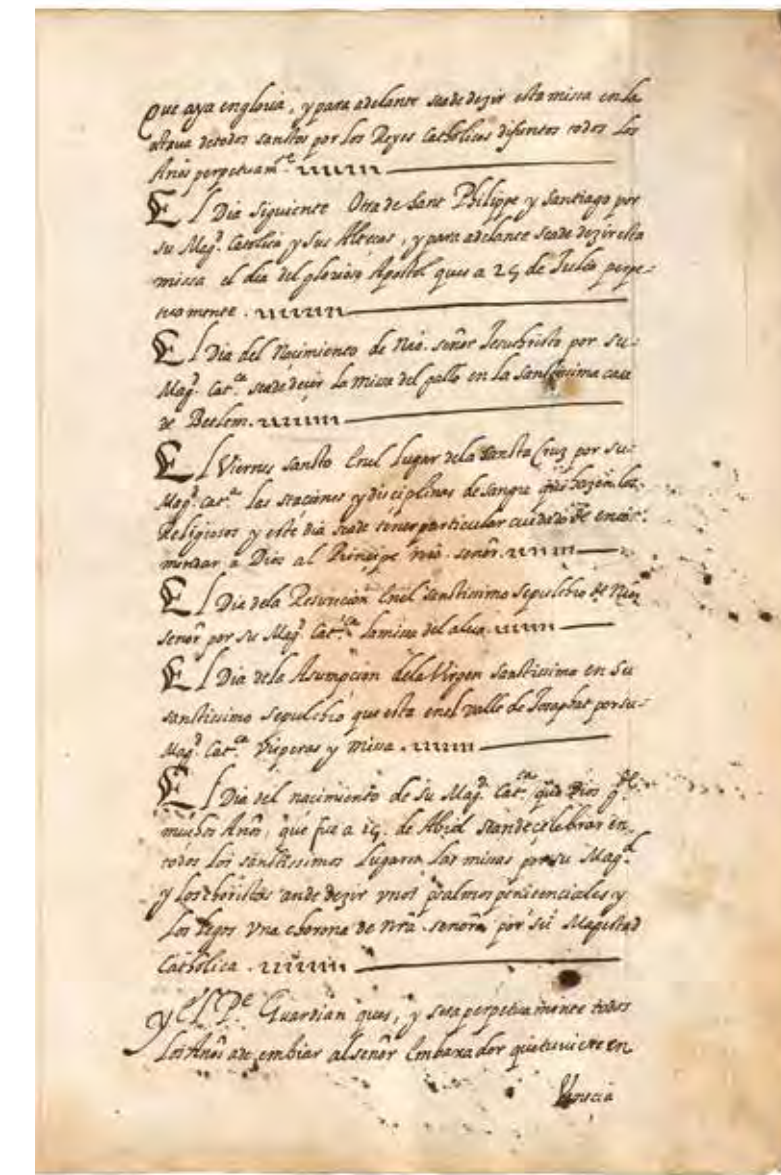 Que aya engloria, y para adelante seade dezir esta missa en la
octava detodos sanctos por los Reyes Catholicos difuntos todos los
Años perpetuam.te
El Dia siguiente Otra de Sant Philippe y Santiago por
su Mag.d Catolica y sus Altezas, y para adelante seade dezir esta
missa el dia del glorioso Apostol ques a 25 de Julio perpe-
tuamente.
El Dia del Nacimiento de Nro. señor Jesuchristo por su-
Mag.d Cat.ca seade dezir la missa del gallo en la Sanctissima casa
de Betlem.
El Viernes sancto Enel lugar dela sancta Cruz por su-
Mag.d Cat.ca las staciones y disciplinas de sangre que hazen los
Religiosos y este dia seade tener particular cuidado de enco-
mendar a Dios al Principe nro. señor.
El Dia dela Resurecion Enel sanctissimo sepulchro de Nro
señor por su Mag.d Cat.ca la missa del alua.
El Dia dela Asumpcion dela Virgen sanctissima en su
sanctissimo sepulchro que esta enel valle de Josaphat por su-
Mag.d Cat.ca visperas y missa.
El Dia del nacimiento de su Mag.d Cat.ca que Dios g.de
muchos Años, que fue a de Abril seande celebrar en
todos los sanctissimos lugares las missas por su Mag.d
y los choristas ande dezir unos psalmos penitenciales y
los legos Una chorona de nra. señora por su Magestad
Catholica.
y El P.e Guardian ques, y sera perpetuamente todos
los Años ade embiar al señor Embaxador que tuviere en
Venecia